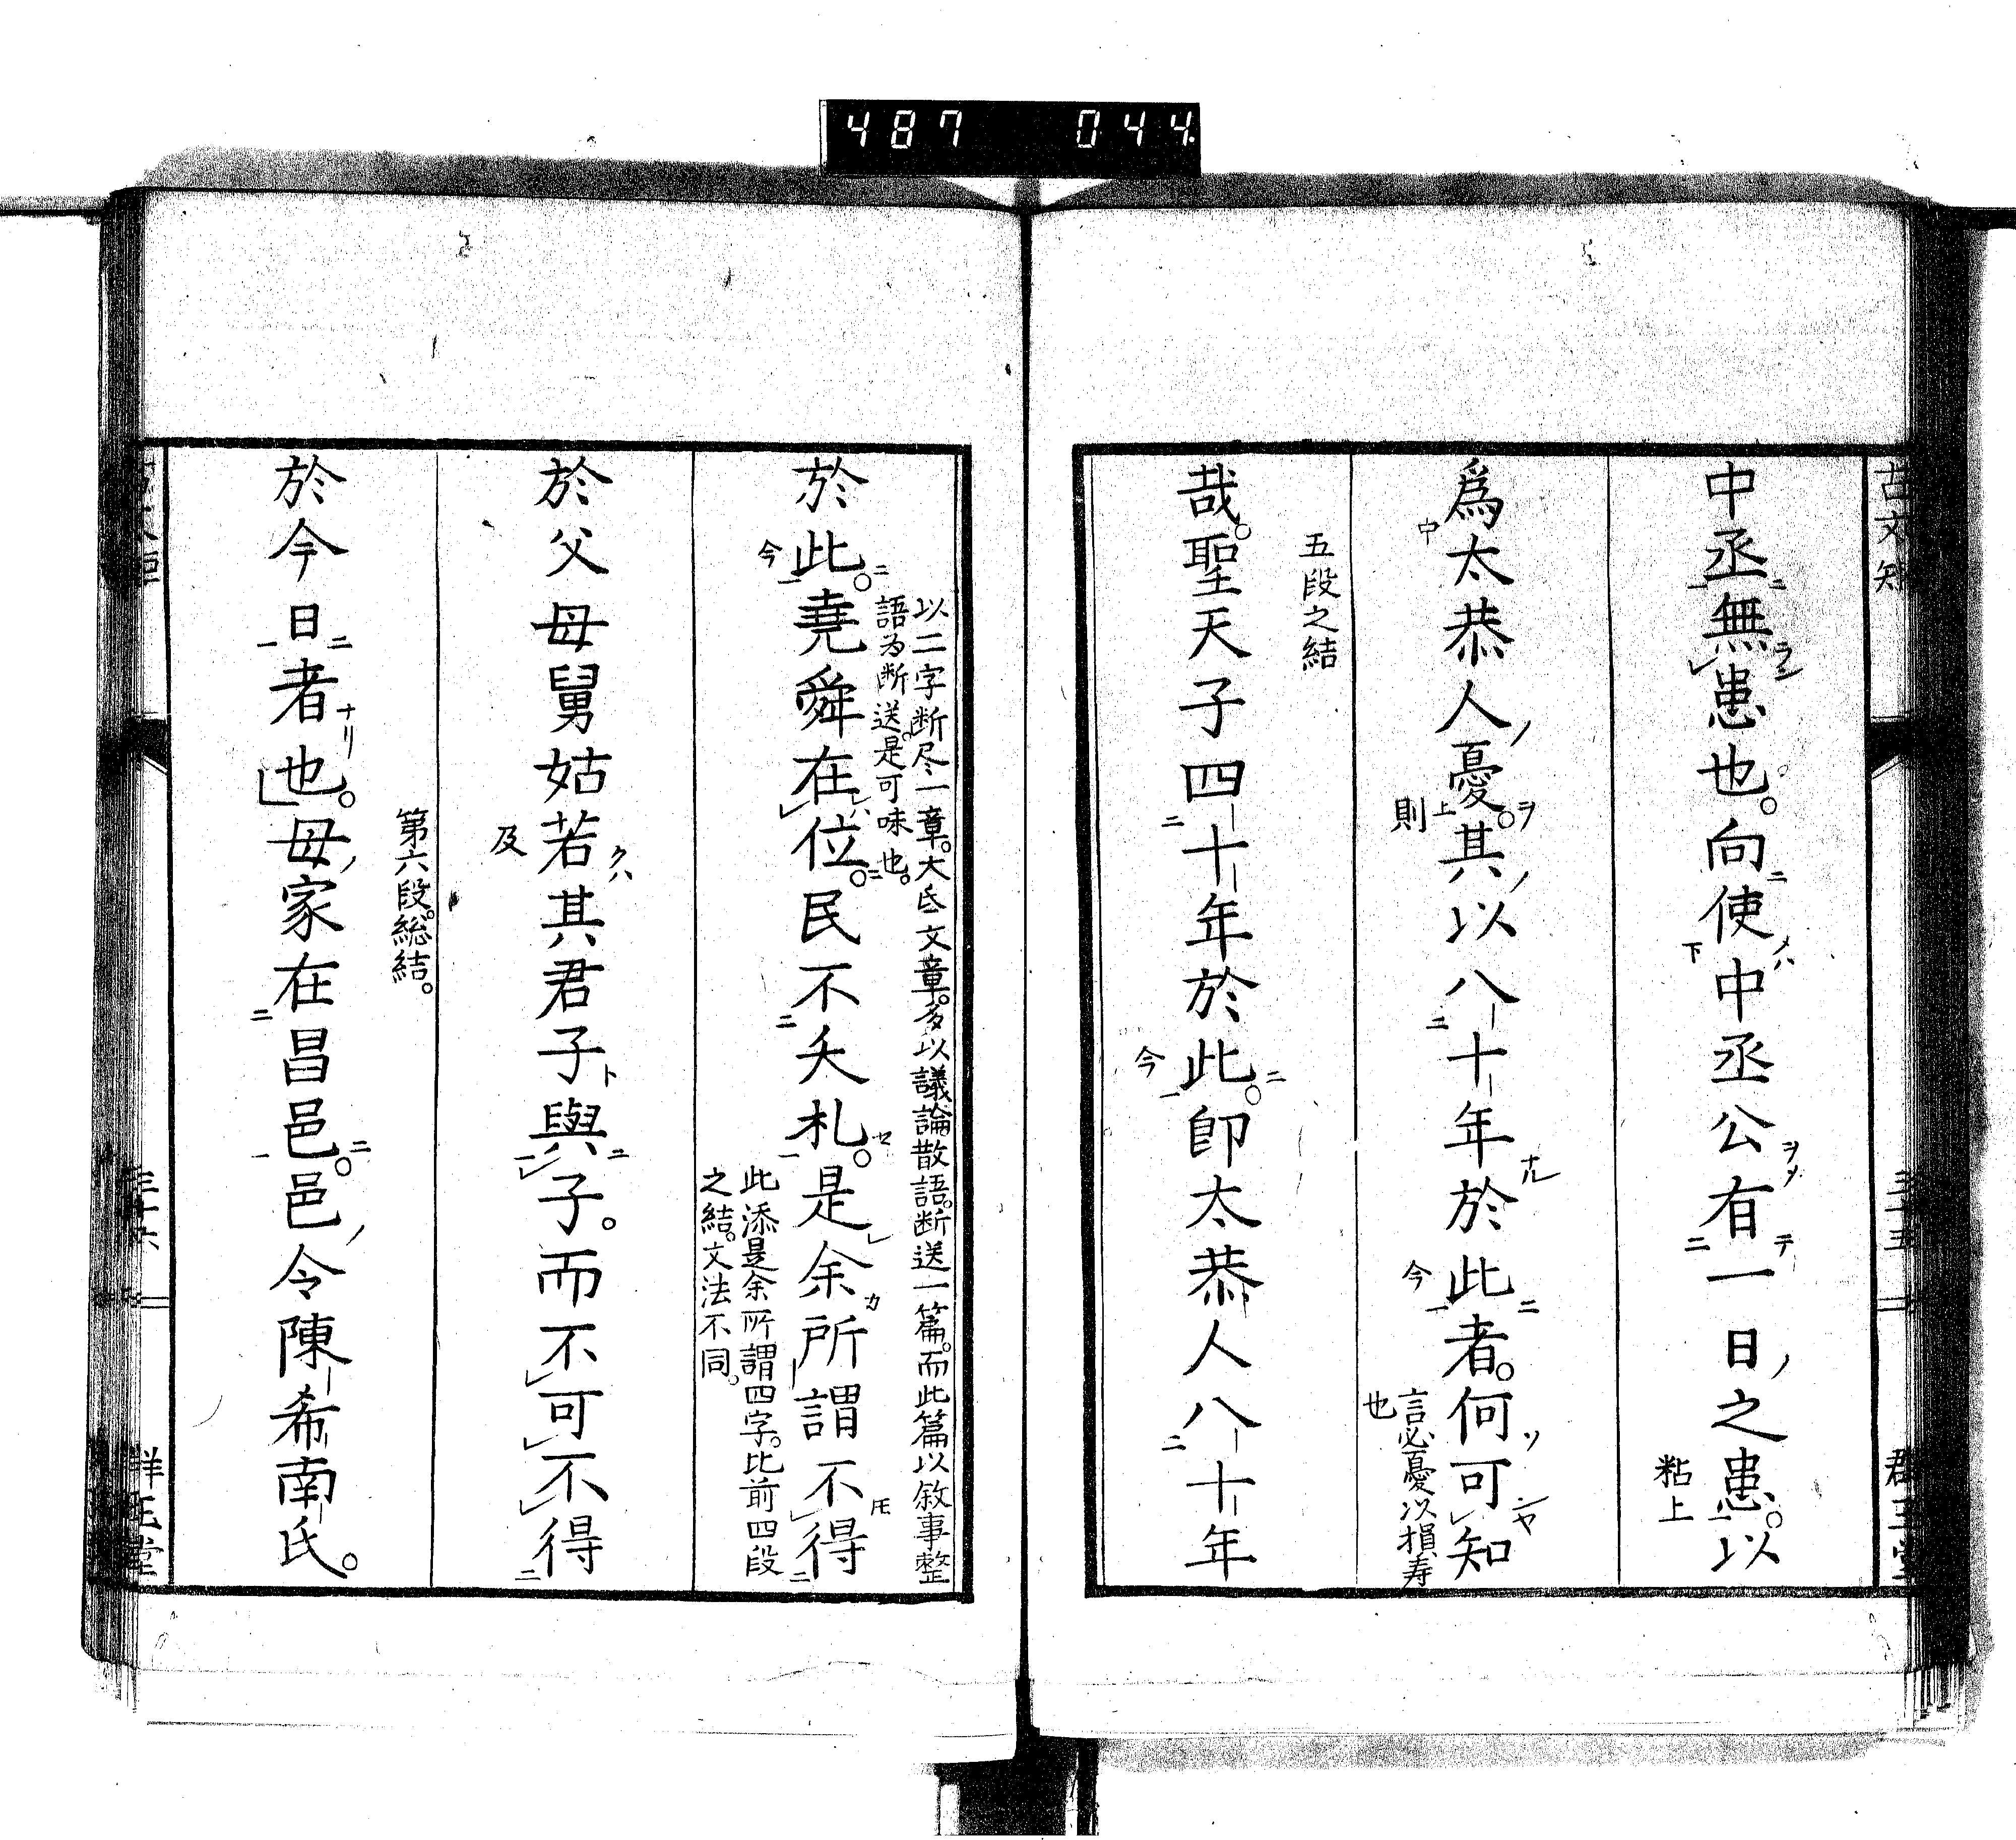 487 044
古文矩
中丞無患也。向使中丞公有一日之患。以
粘上
爲太恭人憂。其以八十年於此者。何可知
則
今
言必憂以損寿
也
五段之結
哉。聖天子四十年於此。即太恭人八十年
今
以二字断尽一章。大氐文章。多以議論散語。断送一篇。而此篇以敘事整
語为断送。是可味也。
於此。堯舜在位。民不夭札。是余所謂不得
今
此添是余所謂四字。比前四段
之結。文法不同。
於父母舅姑若其君子與子。而不可不得
及
第六段。総結。
於今日者也。母家在昌邑。邑令陳希南氏。